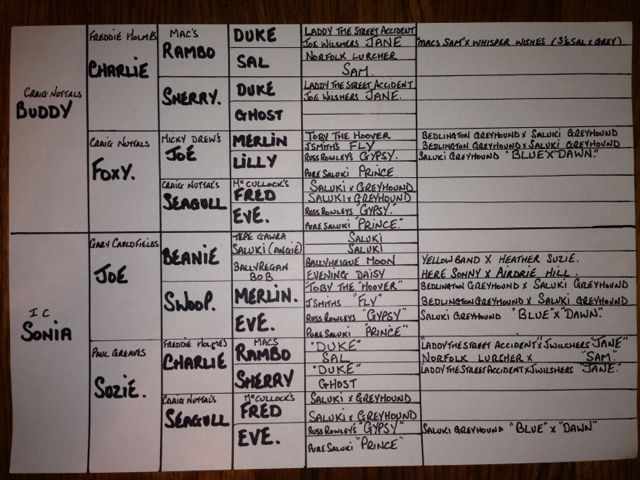 CRAIG NUTTALS
BUDDY
I C
SONIA
FREDDIE HOLMES
CHARLIE
CRAIG NUTTALS
FOXY.
GARY CAULDFIELDS
JOE
PAUL GREAVES
SUZIE.
MAC'S
RAMBO
SHERRY.
MICKY DREW'S
JOE
CRAIG NUTTAL'S
SEAGULL
BEANIE
SWOOP.
FREDDIE HOLMES
CHARLIE
CRAIG NUTTAL'S
SEAGULL
DUKE
SAL
DUKE
GHOST
MERLIN
LILLY
McCULLOCK'S
FRED
EVE.
TEPE GAWRA
SALUKI (ANGIE)
BALLYREGAN
BOB
MERLIN.
EVE.
MACS
RAMBO
SHERRY
McCULLOCK'S
FRED
EVE.
LADDY THE STREET ACCIDENT
JOE WILSHERS JANE
NORFOLK LURCHER
SAM.
LADDY THE STREET ACCIDENT
JOE WILSHERS JANE.
TOBY THE HOOVER
JSMITHS FLY
ROSS ROWLEY'S GYPSY.
PURE SALUKI PRINCE
SALUKI x GREYHOUND
SALUKI x GREYHOUND
ROSS ROWLEYS "GYPSY."
PURE SALUKI "PRINCE."
SALUKI
SALUKI
BALLYHEIGUE MOON
EVENING DAISY
TOBY THE "HOOVER"
JSMITHS "FLY"
ROSS ROWLEYS "GYPSY"
PURE SALUKI "PRINCE"
"DUKE"
SAL
"DUKE"
GHOST
SALUKI x GREYHOUND
SALUKI x GREYHOUND
ROSS ROWLEY'S "GYPSY"
PURE SALUKI "PRINCE"
MACS SAM x WHISPER WISHES (3/4 SAL x GREY)
BEDLINGTON GREYHOUND x SALUKI GREYHOUND
BEDLINGTON GREYHOUND x SALUKI GREYHOUND
SALUKI GREYHOUND "BLUE" x "DAWN."
YELLOW BAND x HEATHER SUZIE.
HERE SONNY x AIRDRIE HILL.
BEDLINGTON GREYHOUND x SALUKI GREYHOUND
BEDLINGTON GREYHOUND x SALUKI GREYHOUND
SALUKI GREYHOUND "BLUE" x "DAWN."
"LADDY THE STREET ACCIDENT" x J WILCHERS "JANE"
NORFOLK LURCHER x "SAM."
LADDY THE STREET ACCIDENT x J WILSHERS "JANE."
SALUKI GREYHOUND "BLUE" x "DAWN"